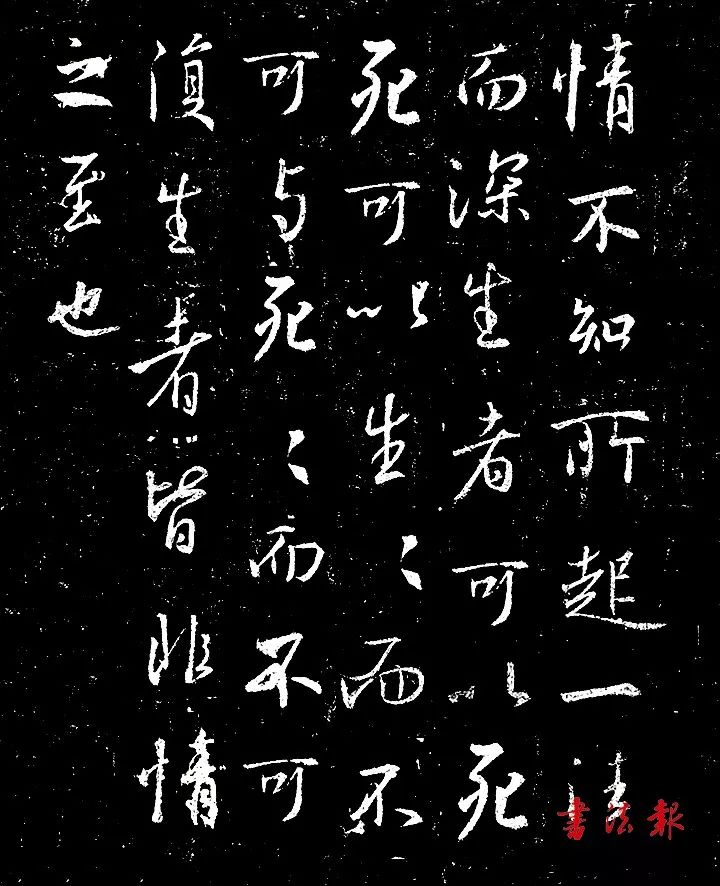 情不知所起一往
而深生者可以死
死可以生〻而不
可与死〻而不可
復生者皆非情
之至也
書法報